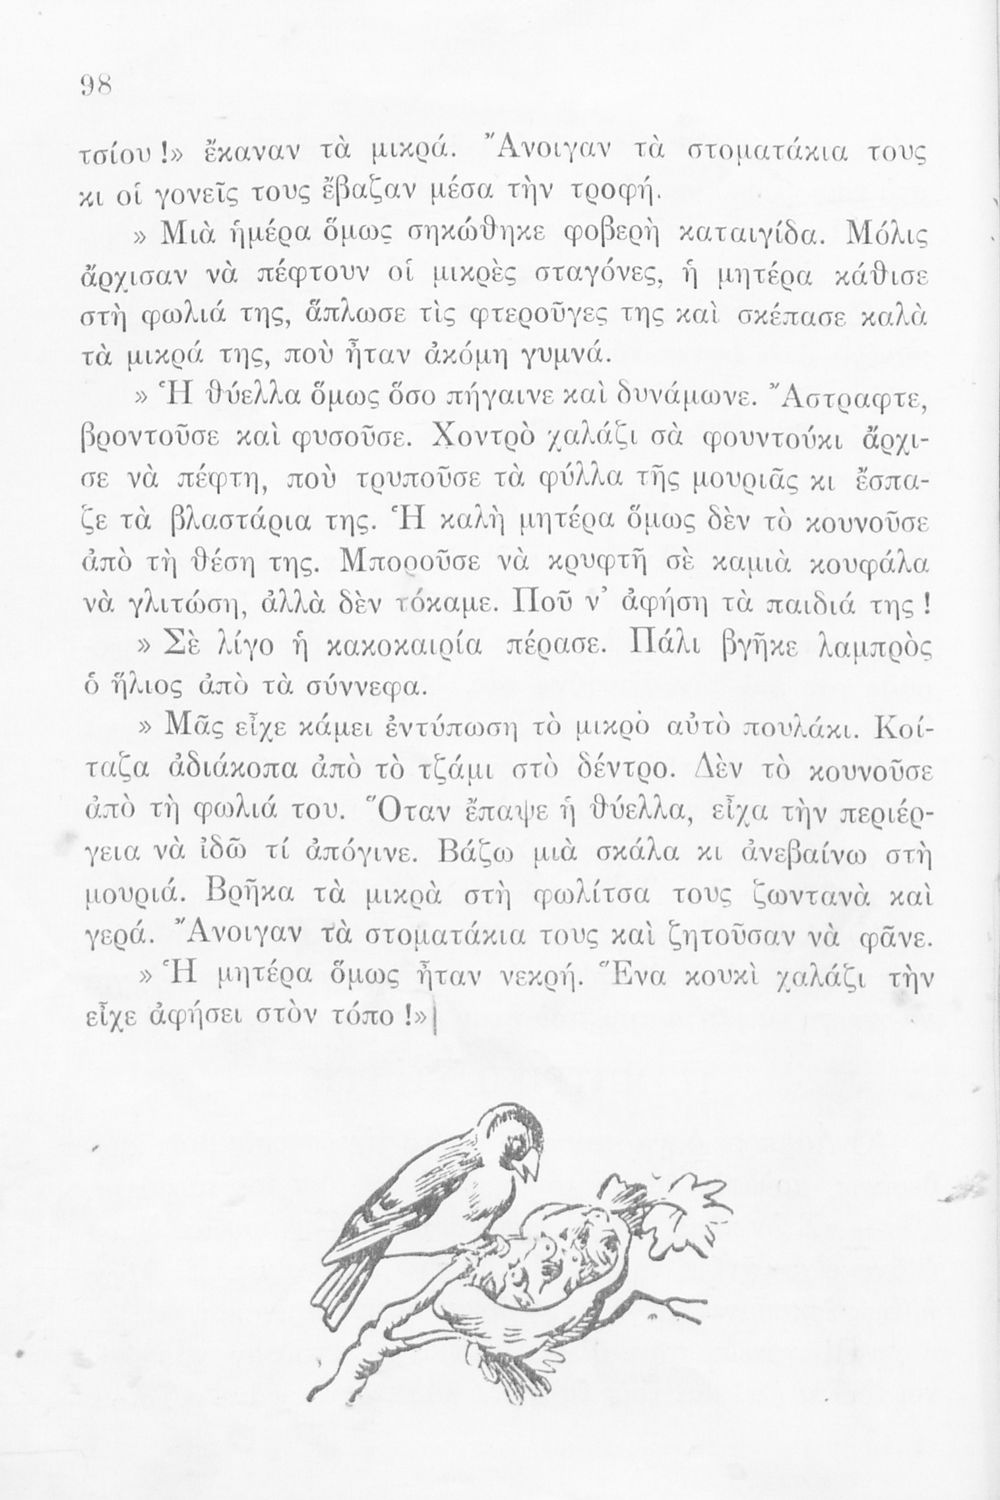 98
τσίου !» ἔκαναν τὰ μικρά. Ἄνοιγαν τὰ στοματάκια τους
κι οἱ γονεῖς τους ἔβαζαν μέσα τὴν τροφή.
» Μιὰ ἡμέρα ὅμως σηκώθηκε φοβερὴ καταιγίδα. Μόλις
ἄρχισαν νὰ πέφτουν οἱ μικρὲς σταγόνες, ἡ μητέρα κάθισε
στὴ φωλιά της, ἅπλωσε τὶς φτεροῦγες της καὶ σκέπασε καλὰ
τὰ μικρά της, ποὺ ἦταν ἀκόμη γυμνά.
» Ἡ θύελλα ὅμως ὅσο πήγαινε καὶ δυνάμωνε. Ἄστραφτε,
βροντοῦσε καὶ φυσοῦσε. Χοντρὸ χαλάζι σὰ φουντούκι ἄρχι-
σε νὰ πέφτη, ποὺ τρυποῦσε τὰ φύλλα τῆς μουριᾶς κι ἔσπα-
ζε τὰ βλαστάρια της. Ἡ καλὴ μητέρα ὅμως δὲν τὸ κουνοῦσε
ἀπὸ τὴ θέση της. Μποροῦσε νὰ κρυφτῆ σὲ καμιὰ κουφάλα
νὰ γλιτώση, ἀλλὰ δὲν τόκαμε. Ποῦ ν' ἀφήση τὰ παιδιά της !
» Σὲ λίγο ἡ κακοκαιρία πέρασε. Πάλι βγῆκε λαμπρὸς
ὁ ἥλιος ἀπὸ τὰ σύννεφα.
» Μᾶς εἶχε κάμει ἐντύπωση τὸ μικρὸ αὐτὸ πουλάκι. Κοί-
ταζα ἀδιάκοπα ἀπὸ τὸ τζάμι στὸ δέντρο. Δὲν τὸ κουνοῦσε
ἀπὸ τὴ φωλιά του. Ὅταν ἔπαψε ἡ θύελλα, εἶχα τὴν περιέρ-
γεια νὰ ἰδῶ τί ἀπόγινε. Βάζω μιὰ σκάλα κι ἀνεβαίνω στὴ
μουριά. Βρῆκα τὰ μικρὰ στὴ φωλίτσα τους ζωντανὰ καὶ
γερά. Ἄνοιγαν τὰ στοματάκια τους καὶ ζητοῦσαν νὰ φᾶνε.
» Ἡ μητέρα ὅμως ἦταν νεκρή. Ἕνα κουκὶ χαλάζι τὴν
εἶχε ἀφήσει στὸν τόπο !»